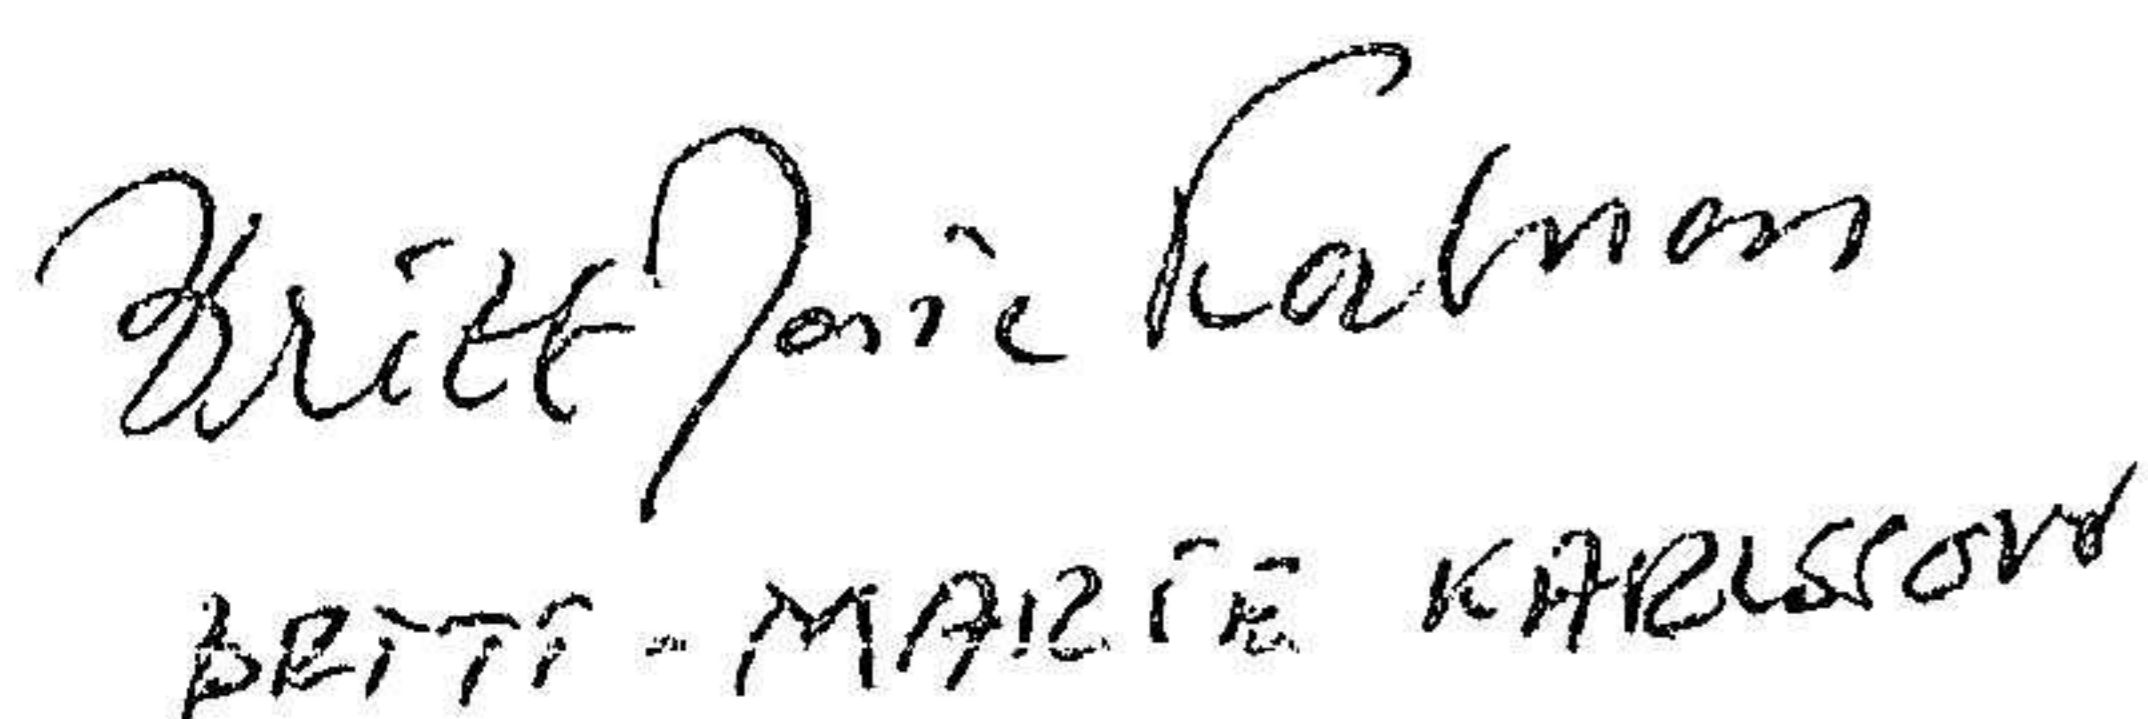 Britt Marie Karlsson
BRITT-MARIE KARLSSON